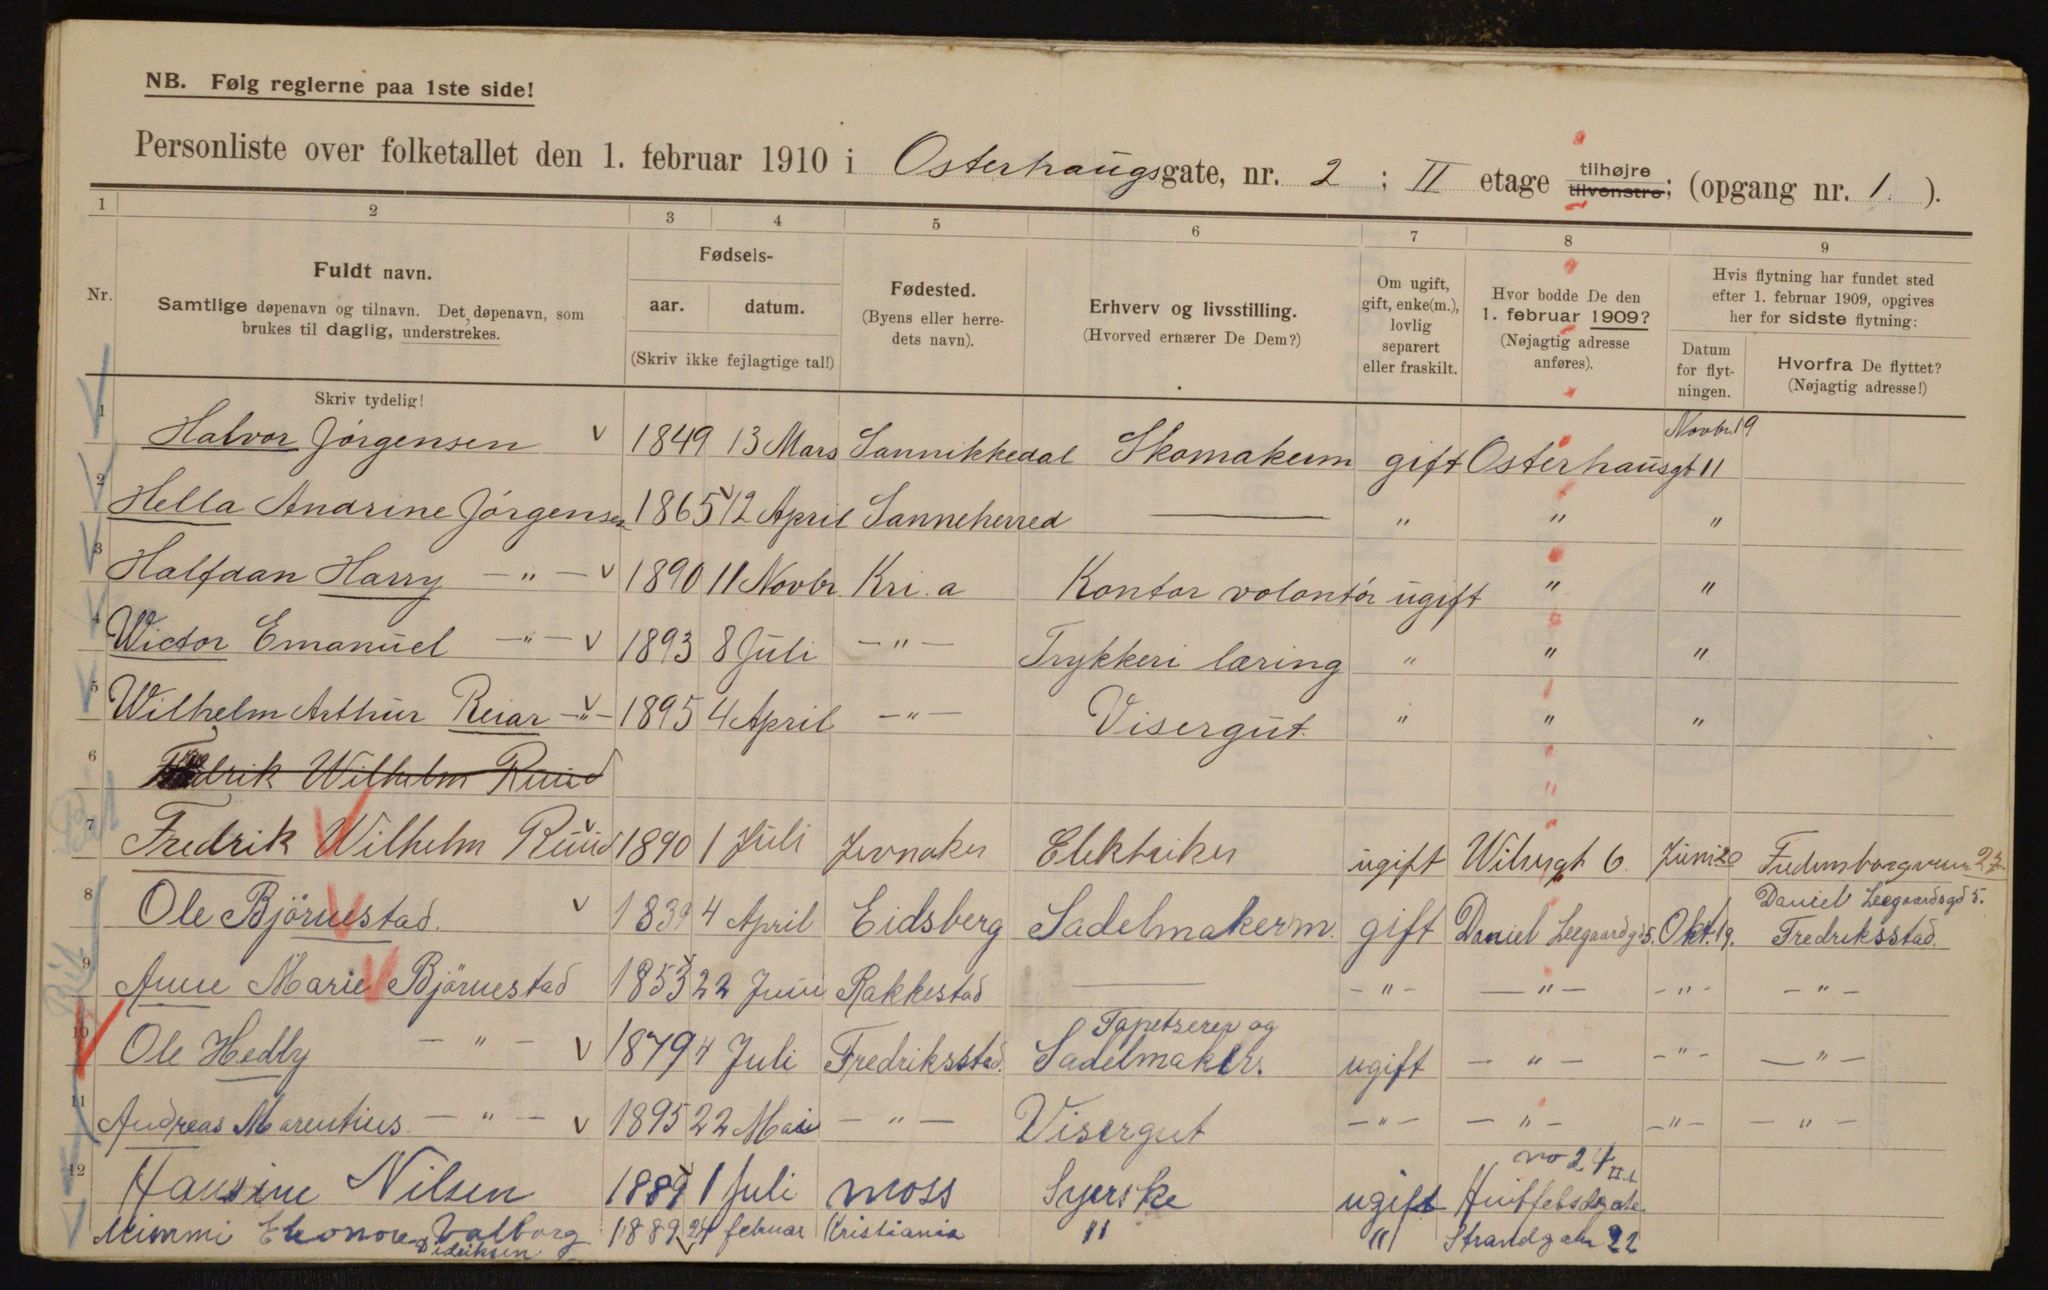 NB. Følg reglerne paa 1ste side!
Personliste over folketallet den 1. februar 1910 i Osterhaugsgate, nr. 2 ; II etage tilhøjre tilvenstre; (opgang nr. 1. ).
1 2 3 4 5 6 7 8 9
Nr.
Fuldt navn.
Samtlige døpenavn og tilnavn. Det døpenavn, som
brukes til daglig, understrekes.
Fødsels-
aar. datum.
(Skriv ikke fejlagtige tal!)
Fødested.
(Byens eller herre-
dets navn).
Erhverv og livsstilling.
(Hvorved ernærer De Dem?)
Om ugift,
gift, enke(m.),
lovlig
separert
eller fraskilt.
Hvor bodde De den
1. februar 1909?
(Nøjagtig adresse
anføres).
Hvis flytning har fundet sted
efter 1. februar 1909, opgives
her for sidste flytning:
Datum
for flyt-
ningen.
Hvorfra De flyttet?
(Nøjagtig adresse!)
Skriv tydelig!
1 Halvor Jørgensen 1849 13 Mars Sannikkedal Skomakerm gift Osterhausgt 11 Novbr. 19
2 Hella Andrine Jørgensen 1865 12 April Sanneherred — " " "
3 Halfdan Harry — " — 1890 11 Novbr Kri.a Kontor volontør ugift " "
4 Wictor Emanuel — " — 1893 8 Juli — " — Trykkeri læring " " "
5 Wilhelm Arthur Reiar — " — 1895 4 April — " — Visergut. " " "
6 Fredrik Wilhelm Ruud
7 Fredrik Wilhelm Ruud 1890 1 Juli Jevnaker Elektriker ugift Wibesgt 6. Juni 20 Fredensborgveien 27
Daniel Leegaardsgd 5.
8 Ole Björnestad. 1839 4 April Eidsberg Sadelmakerm. gift Daniel Leegaardgd 5. Okt. 19. Fredriksstad.
9 Anne Marie Björnestad 1853 22 Juni Rakkestad — - " - — " — - " - — " —
10 Ole Hedly — " — 1879 4 Juli Fredriksstad. Tapetserer og
Sadelmaker. ugift — " — - " - — " —
11 Andreas Marentius — " — 1895 22 Mai — " — Visergut — " — — " — — " — — " —
12 Hansine Nilsen 1889 1 Juli moss Syerske ugift no 24 II.t
Huitfeldsgate.
Mimmi Elonore Valborg 1889 24 februar Kristiania " " Strandgaten 22
Didriksen